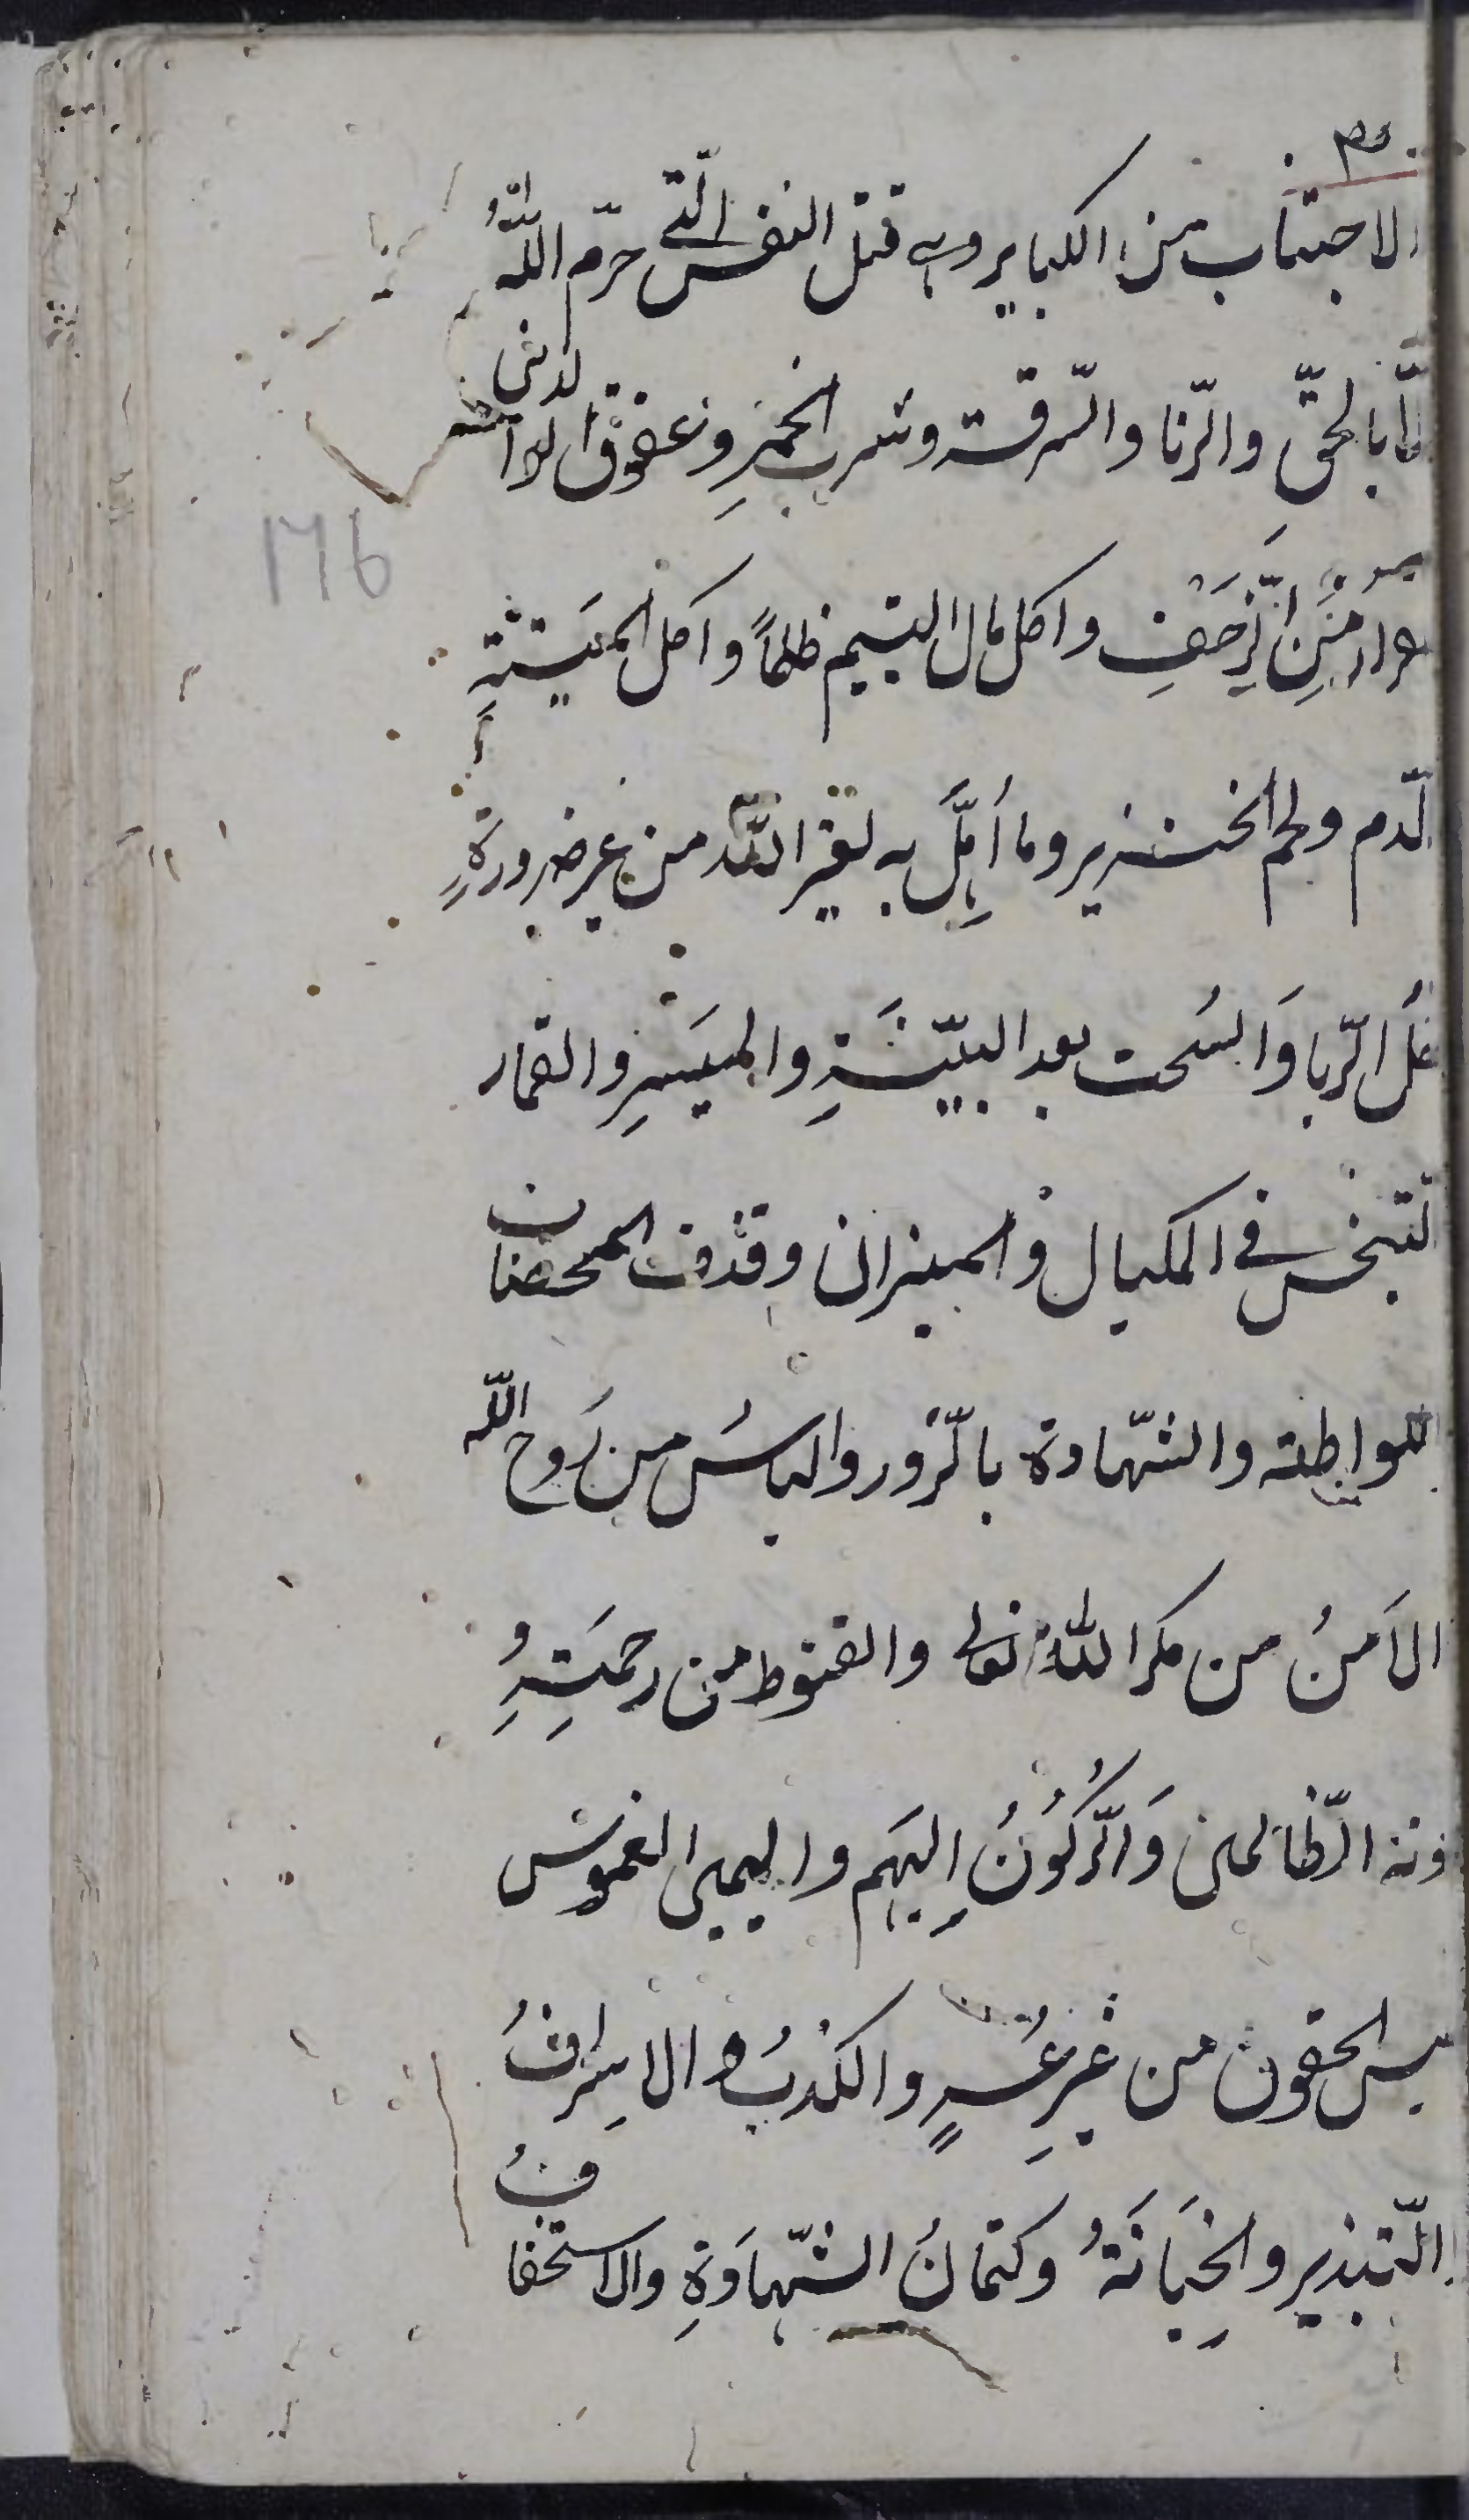 الاجتناب من الكباير وهى قتل النفس الّتى حرّم اللّهُ
الّا بالحقّ والزّنا والسّرقة وشرب الخمرِ وعقوق الوالدين
من الزَحَفِ واكل مال اليتيم ظلماً واكل الميَتَةِ
لدّم ولحم الخنزير وما اُهِلَّ به لغير اللّه من غير ضرورةٍ
الرّبا وَالسُحت بعد البيّنَةِ والميَسِرِ والقمار
لبخس فى المكيال والميزان وقذف المحصنات
للواطة والشّهادة بالزّور والياسُ من رَوح اللّه
الاَمنُ من مكر اللّه تعالى والقنوط من رحمَتِهِ
ونة الظّالمين وَالرّكُونُ اِليهَم واليمين الغموس
بس الحقوق من غيرِ عُسرٍ والكذبُ والاِسرافُ
التّبذير والخِيَانَةُ وكتمانُ الشّهادَةِ والاستخفافُ
116